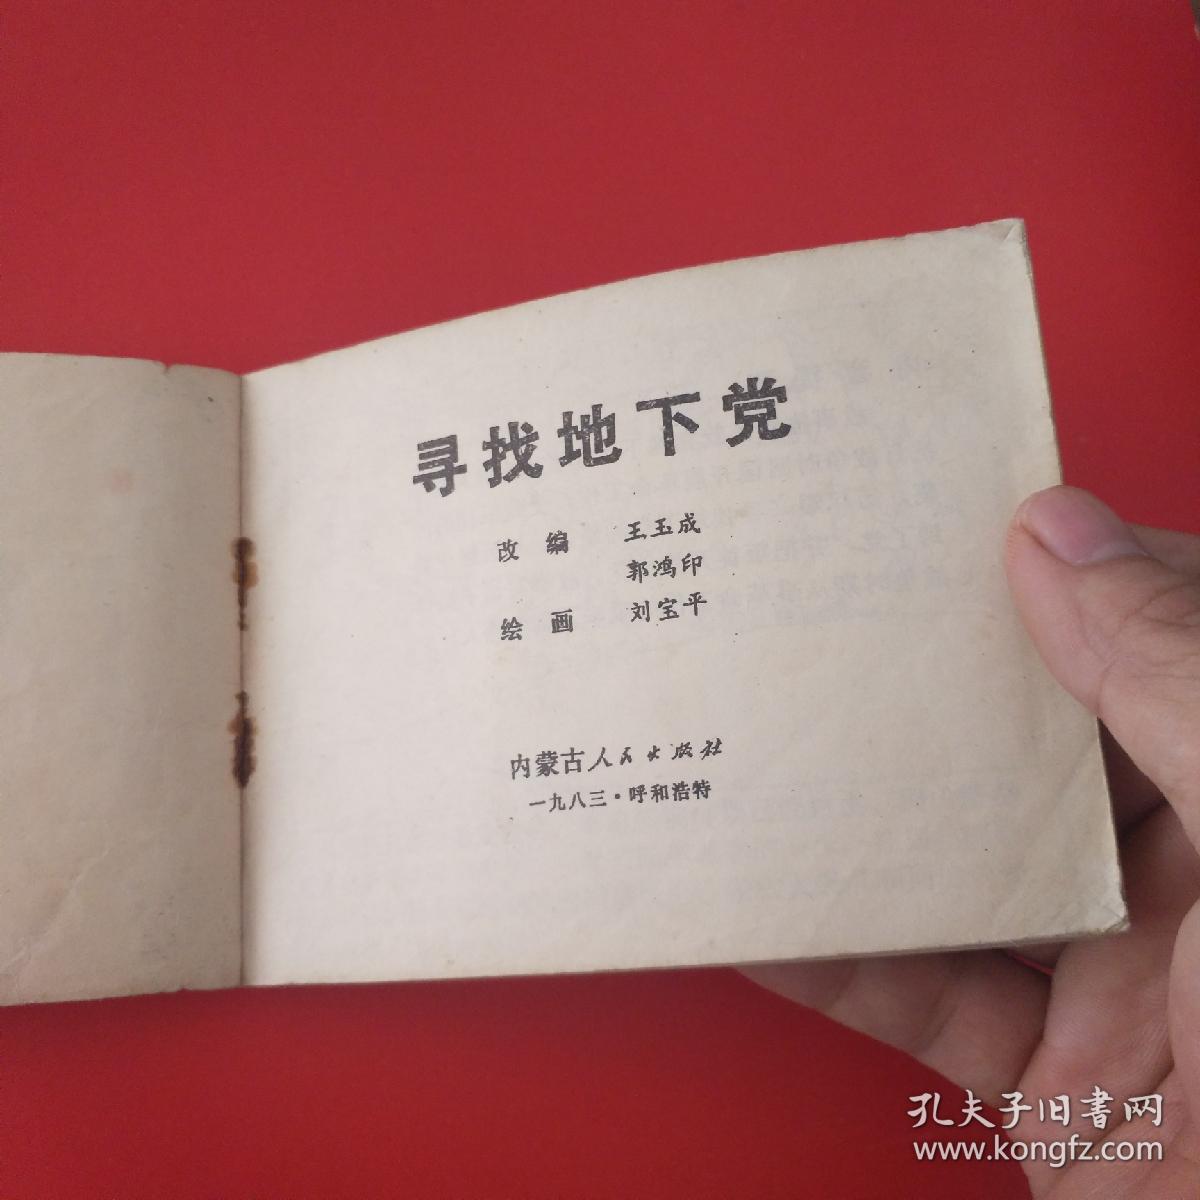 寻找地下党
改编 王玉成
郭鸿印
绘画 刘宝平
内蒙古人民出版社
一九八三·呼和浩特
孔夫子旧书网
www.kongfz.com